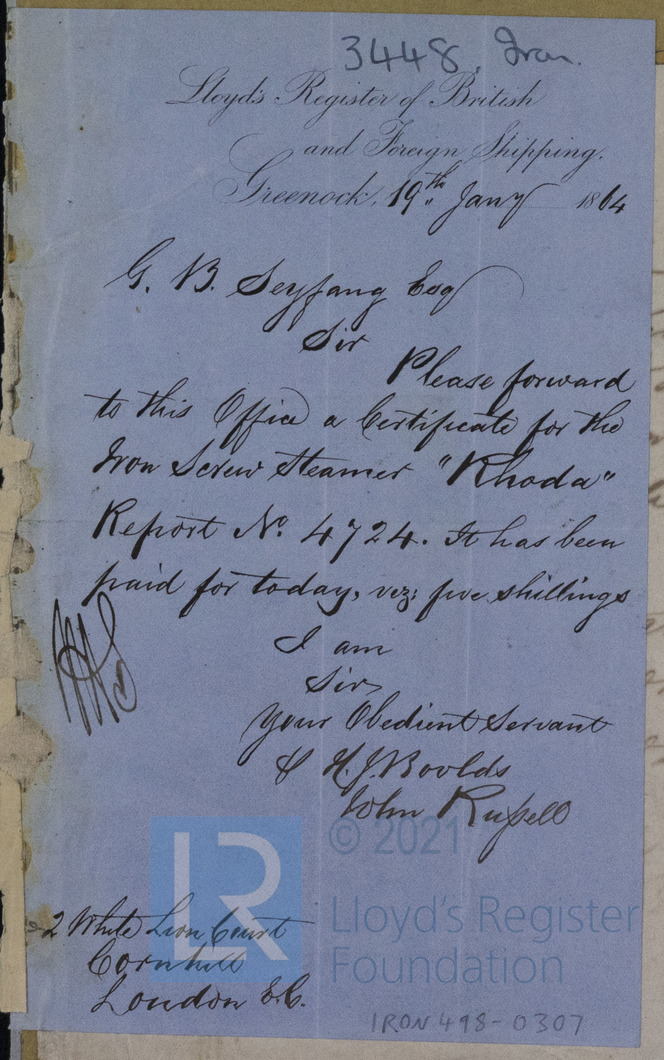 3448. Iron.
Lloyd's Register of British
and Foreign Shipping.
Greenock, 19th Jany 1864
G. B. Seyfang Esq
Sir
Please forward
to this Office a Certificate for the
Iron Screw Steamer "Rhoda"
Report No. 4724. It has been
paid for today, viz; five shillings
I am
Sir,
Your Obedient Servant
H. J. Boolds
John Russell
2 White Lion Court
Cornhill
London E.C.
LR
© 2021
Lloyd's Register
Foundation
IRON 498-0307